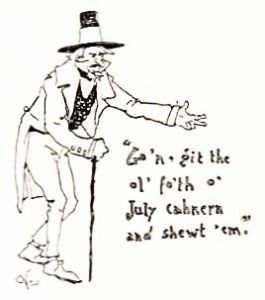 "Go'n, git the
ol' fo'th o'
July cahnern
and shewt 'em."